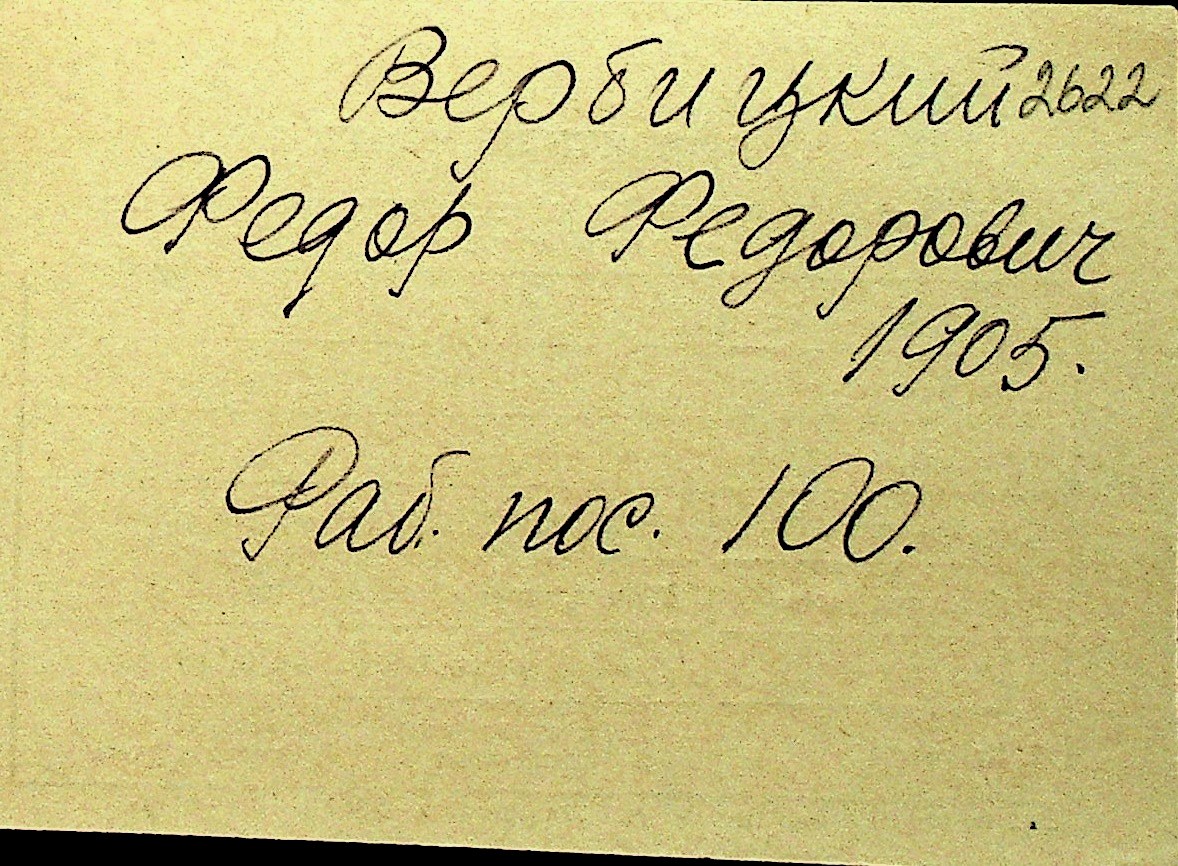 Вербицкий 2622
Федор Федорович
1905.
Раб. пос. 100.